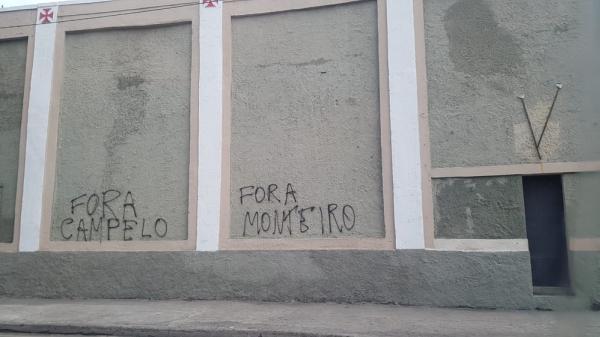 FORA
CAMPELO
FORA
MONTEIRO